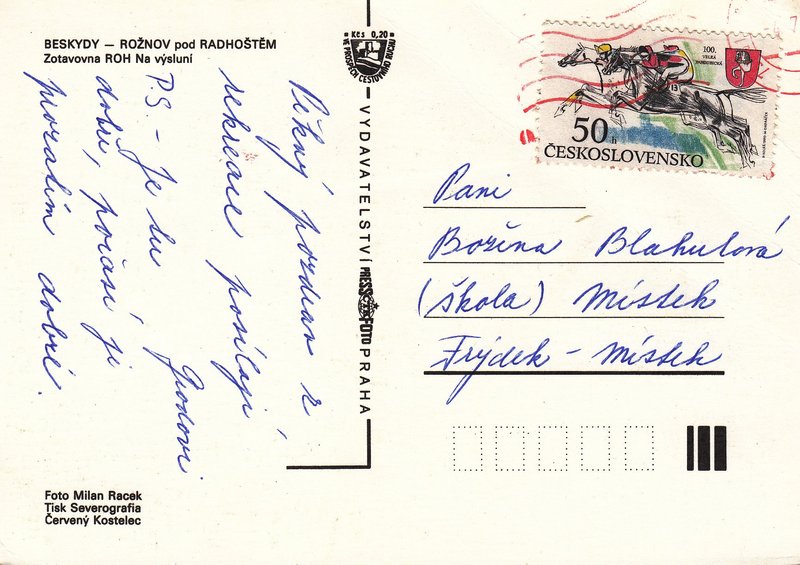 BESKYDY — ROŽNOV pod RADHOŠTĚM
Zotavovna ROH Na výsluní
Pěkný pozdrav z
rekreace posílají
Hodovi
P.S. - Je tu
dobře, počasí je
prozatím dobré.
Kčs 0,20
VE PROSPĚCH CESTOVNÍHO RUCHU
VYDAVATELSTVÍ PRESSFOTO PRAHA
100.
VELKÁ
PARDUBICKÁ
13
50 h
ČESKOSLOVENSKO
Paní
Božena Blahutová
(škola) Místek
Frýdek - Místek
Foto Milan Racek
Tisk Severografia
Červený Kostelec